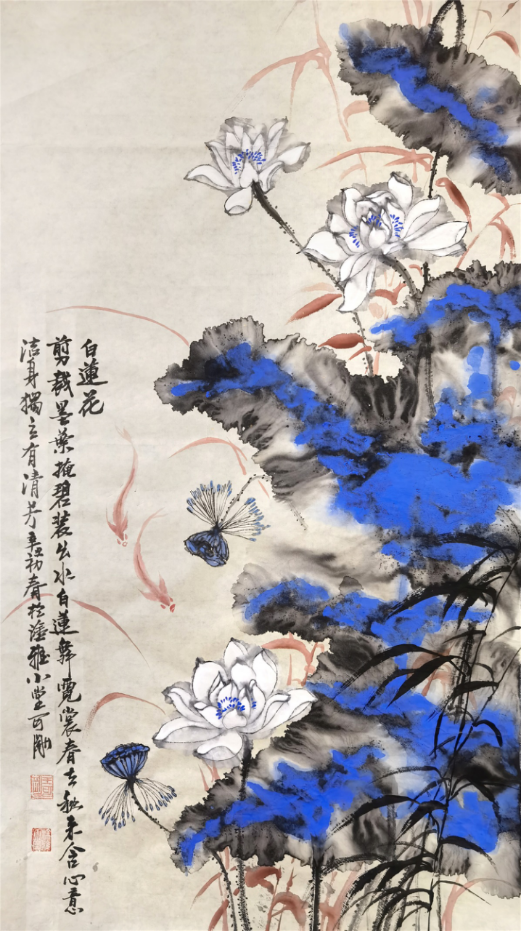 白蓮花
剪裁墨葉掩碧裝出水白蓮舞霓裳春去秋来含心意
洁身獨立有清芳辛丑初春於雅小堂可剛